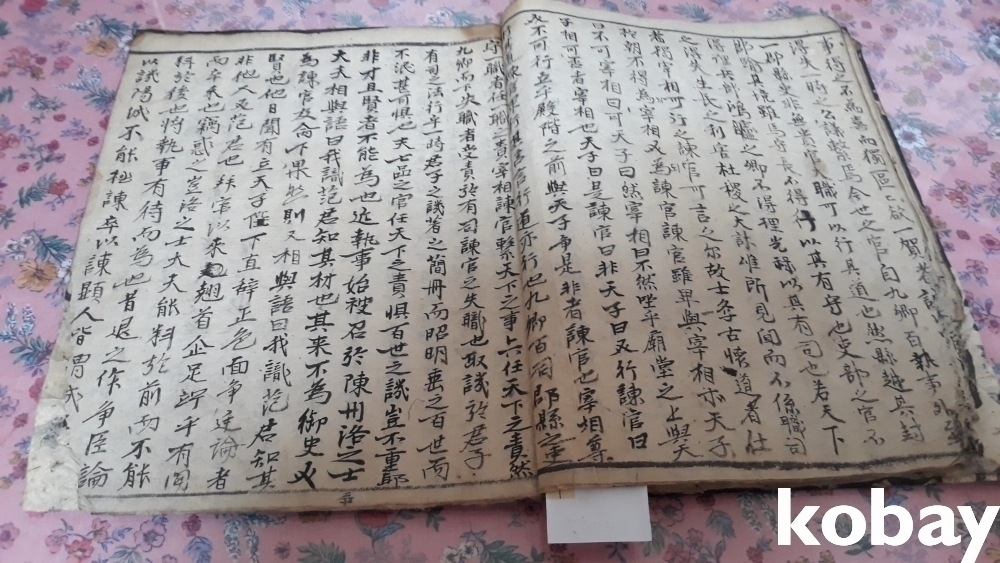 事得之不為喜而獨區〻欲一賀者
得失一時之公議繫焉今世之官自九卿百執事外至
一郡縣吏非無貴官大職可以行其道也然縣越其封
郡踰其境雖馬守長不得行以其有守也吏部之官不
得理兵部鴻臚之卿不得理光祿以其有司也若天下
之得失生民之利害社稷之大計惟所見聞而不係職司
者獨宰相可行之諫官可言之尔故士斈古懷道者仕
於朝不得為宰相必為諫官諫官雖卑與宰相亦天子
曰不可宰相曰可天子曰然宰相曰不然坐乎廟堂之上與天
子相可否者宰相也天子曰是諫官曰非天子曰必行諫官曰
必不可行立乎殿階之前與天子爭是非者諫官也宰相尊
言行道亦行也九卿百司郡縣之吏
守一職者任一職之責宰相諫官繫天下之事亦任天下之責然
九卿而下失職者受責於有司諫官之失職也取譏於君子
有司之法行乎一時君子之譏著之簡冊而昭明垂之百世而
不泯甚可惧也夫七品之官任天下之責惧百世之譏豈不重耶
非才且賢者不能為也近執事始被召於陳州洛之士
大夫相與語曰我識范君知其材也其來不為御史必
為諫官及命下果然則又相與語曰我識范君知其
賢也他日聞有立天子陛下直辞正色面争廷論者
非他人必范君也拜官以來翹首企足竚乎有聞
而卒未也竊惑之豈洛之士大夫能料於前而不能
料於後也将執事有待而為也昔退之作争臣論
以譏陽城不能極諫卒以諫顕人皆謂城
kobay